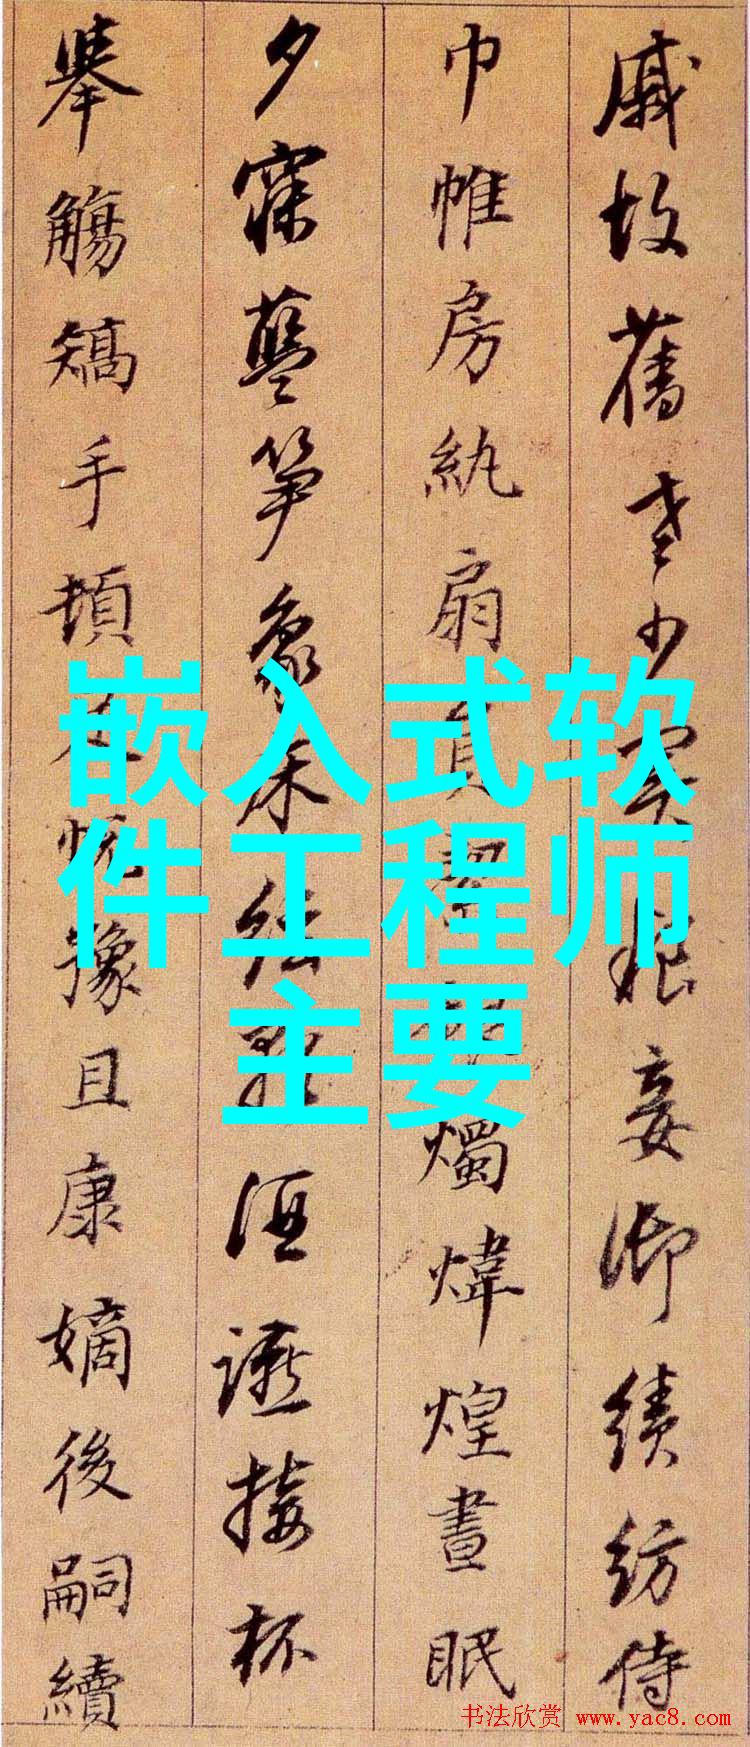 戚故舊老少異粮妾御績紡侍
巾帷房紈扇員
燭煒煌晝眠
夕寐藍笋象床絃歌酒讌接杯
舉觴矯手頓足悅豫且康嫡後嗣續
嵌入式软
件工程师
主要
书法欣赏 www.yac8.com